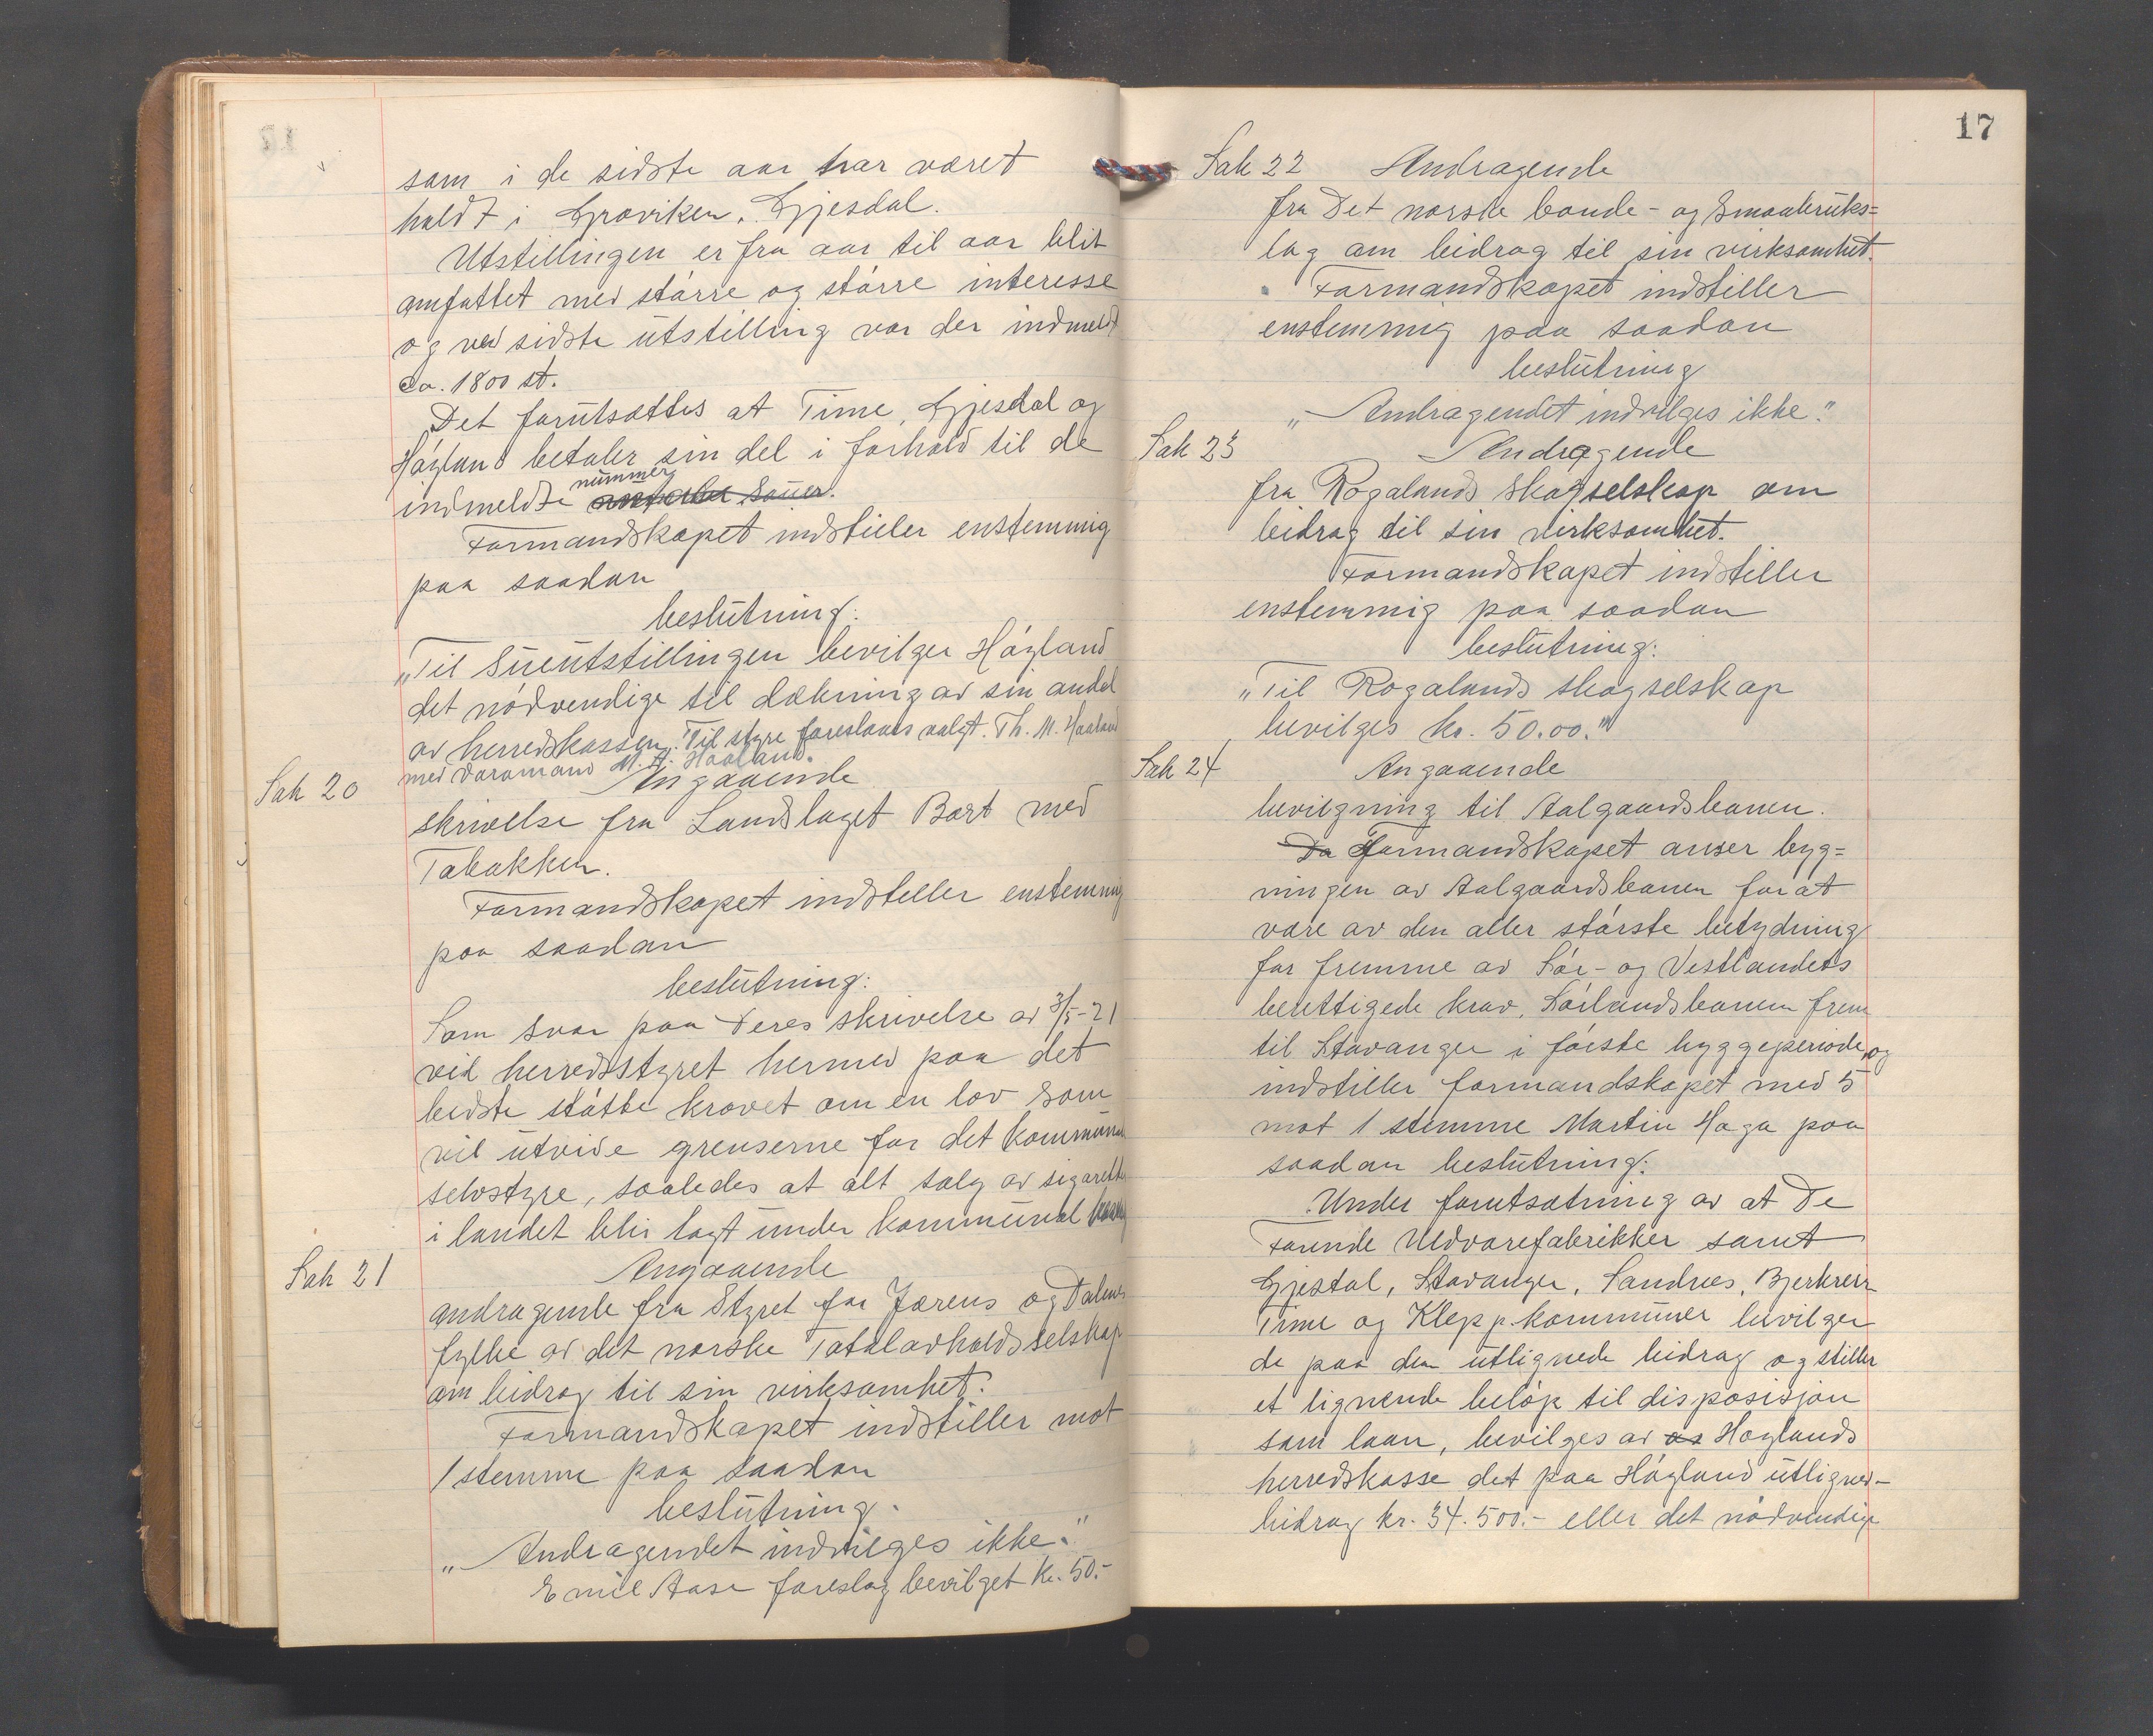 som i de sidste aar har været
holdt i Gjøviken, Gjesdal.
Utstillingen er fra aar til aar blit
omfattet med større og større interesse
og ved sidste utstilling var der indmeldt
ca. 1800 st.
Det forutsættes at Time, Gjesdal og
Høyland betaler sin del i forhold til de
nummer
indmeldte sauer.
Formandskapet indstiller enstemmig
paa saadan
beslutning:
"Til Sueutstillingen bevilger Høyland
det nødvendige til dækning av sin andel
av herredskassen". Til styre foreslaaes valgt. Th. M. Haaland
med varamand M. A. Haaland.
Sak 20 Angaaende
skrivelse fra Landslaget Bort med
Tobakken.
Formandskapet indstiller enstemmig
paa saadan
beslutning:
Som svar paa Deres skrivelse av 3/5-21
vil herredsstyret hermed paa det
bedste støtte kravet om en lov som
vil utvide grenserne for det kommunale
selvstyre, saaledes at alt salg av sigaretter
i landet blir lagt under kommunal
Sak 21 Angaaende
andragende fra Styret for Jærens og Dalenes
fylke av det norske Totalavholdsselskap
om bidrag til sin virksomhet.
Formandskapet indstiller mot
1 stemme paa saadan
beslutning.
"Andragendet indvilges ikke."
Emil Aase foreslog bevilget kr. 50.-
17
Sak 22 Andragende
fra Det norske bonde- og Smaabruks=
lag om bidrag til sin virksomhet.
Formandskapet indstiller
enstemmig paa saadan
beslutning
"Andragendet indvilges ikke."
Sak 23 Andragende
fra Rogalands skogselskap om
bidrag til sin virksomhet.
Formandskapet indstiller
enstemmig paa saadan
beslutning:
"Til Rogalands skogselskap
bevilges kr. 50.00."
Sak 24 Angaaende
bevilgning til Aalgaardsbanen.
Da Formandskapet anser byg=
ningen av Aalgaardsbanen for at
være av den aller største betydning
for fremme av Sør- og Vestlandets
berettigede krav, Sørlandsbanen frem
til Stavanger i første byggeperiode, og
indstiller formandskapet med 5
mot 1 stemme Martin Haga paa
saadan beslutning:
Under forutsætning av at De
Forende Uldvarefabrikker samt
Gjestal, Stavanger, Sandnes, Bjerkreim
Time og Klepp kommuner bevilger
de paa dem utlignede bidrag og stiller
et lignende beløp til disposisjon
som laan, bevilges av os Høylands
herredskasse det paa Høyland utlignede
bidrag kr. 34.500.- eller det nødvendige